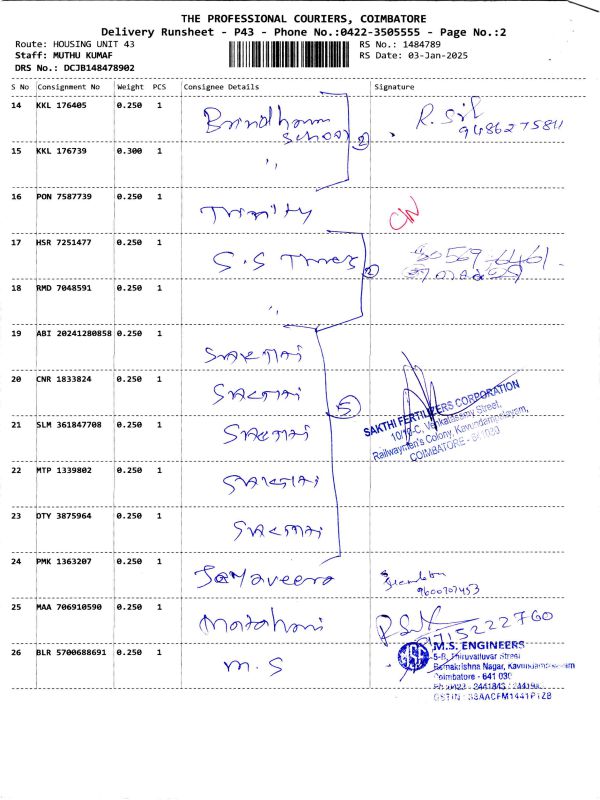 THE PROFESSIONAL COURIERS, COIMBATORE
Delivery Runsheet - P43 - Phone No.:0422-3505555 - Page No.:2
Route: HOUSING UNIT 43
RS No.: 1484789
Staff: MUTHU KUMAF
RS Date: 03-Jan-2025
DRS No.: DCJB148478902
S No Consignment No Weight PCS Consignee Details Signature
14 KKL 176405 0.250 1 School 2 9486275811
15 KKL 176739 0.300 1 ,,
16 PON 7587739 0.250 1 Trinity
17 HSR 7251477 0.250 1 S.S 2
18 RMD 7048591 0.250 1 ,,
19 ABI 20241280858 0.250 1
20 CNR 1833824 0.250 1 5
SAKTHI FERTILIZERS CORPORATION
10/10-C, Venkatasamy Street,
Railwaymen's Colony, Kavundampalayam,
COIMBATORE -
21 SLM 361847708 0.250 1
22 MTP 1339802 0.250 1
23 DTY 3875964 0.250 1
24 PMK 1363207 0.250 1 Jayaveera 9600707453
25 MAA 706910590 0.250 1 9715222760
26 BLR 5700688691 0.250 1 M.S
M.S. ENGINEERS
5-B, Thiruvalluvar Street
Ramakrishna Nagar, Kavundampalayam
Coimbatore - 641 030
GSTIN : 33AACFM1441P1ZB